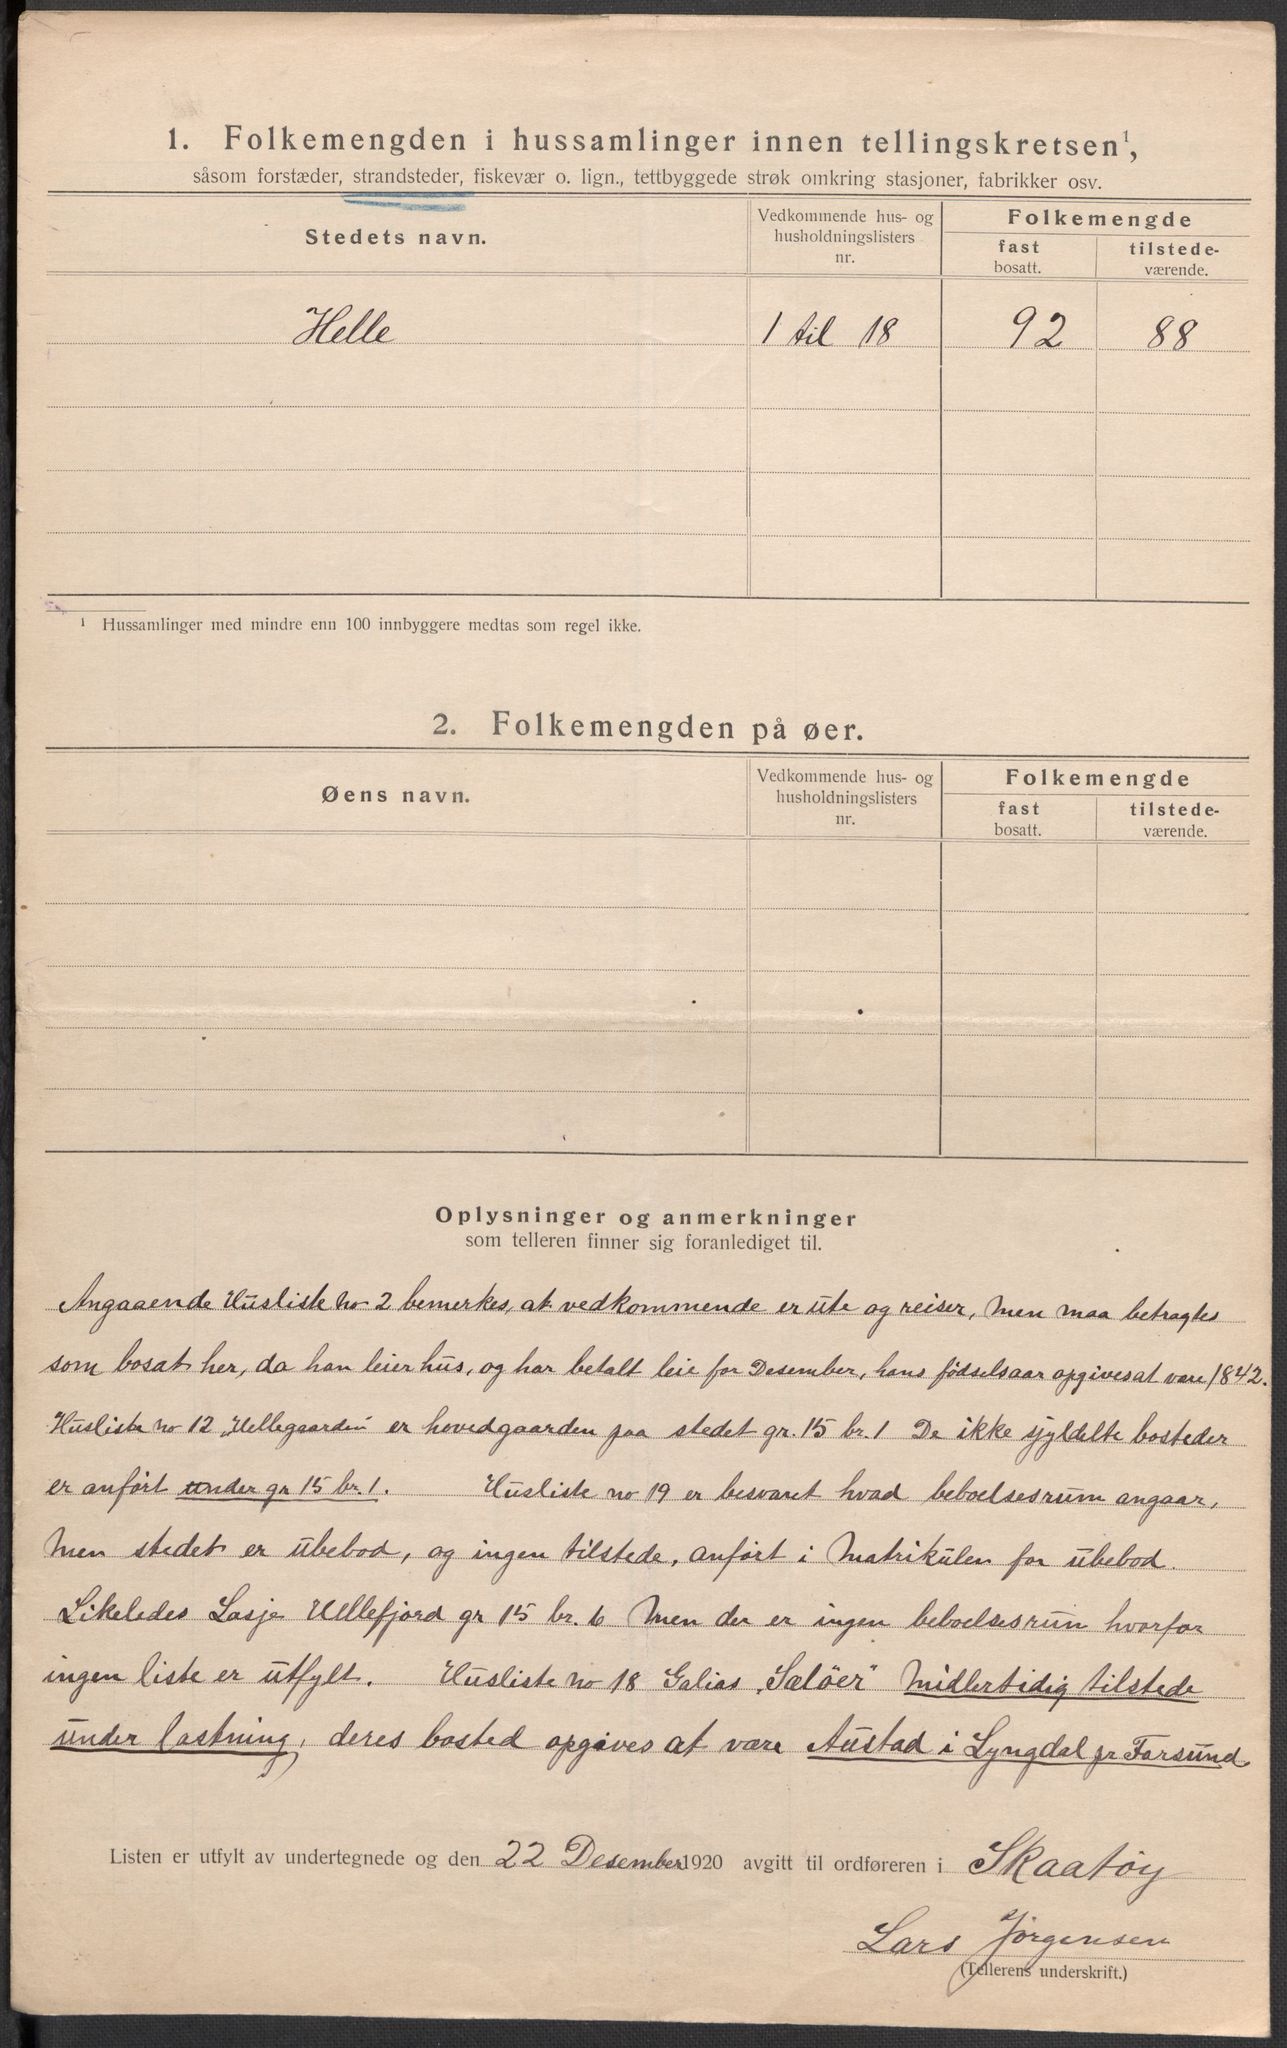 1. Folkemengden i hussamlinger innen tellingskretsen¹,
såsom forstæder, strandsteder, fiskevær o. lign., tettbyggede strøk omkring stasjoner, fabrikker osv.
Stedets navn.
Vedkommende hus- og
husholdningslisters
nr.
Folkemengde
fast
bosatt.
tilstede-
værende.
Helle 1 til 18 92 88
¹ Hussamlinger med mindre enn 100 innbyggere medtas som regel ikke.
2. Folkemengden på øer.
Øens navn.
Vedkommende hus- og
husholdningslisters
nr.
Folkemengde
fast
bosatt.
tilstede-
værende.
Oplysninger og anmerkninger
som telleren finner sig foranlediget til.
Angaaende Husliste no 2 bemerkes, at vedkommende er ute og reiser, men maa betragtes
som bosat her, da han leier hus, og har betalt leie for Desember, hans fødselsaar opgives at være 1842.
Husliste no 12 „Hellegaarden" er hovedgaarden paa stedet gr. 15 br. 1 De ikke sjyldelte bosteder
er anført under gr 15 br. 1. Husliste no 19 er besvaret hvad beboelsesrum angaar,
men stedet er ubebod, og ingen tilstede, anført i Matrikulen for ubebod.
Likeledes Lasje Hellefjord gr 15 br. 6 men der er ingen beboelsesrum hvorfor
ingen liste er utfylt. Husliste no 18 Galias „Sæløer" midlertidig tilstede
under lastning, deres bosted opgives at være Austad i Lyngdal pr Farsund
Listen er utfylt av undertegnede og den 22 Desember 1920 avgitt til ordføreren i Skaatøy
Lars Jørgensen
(Tellerens underskrift.)